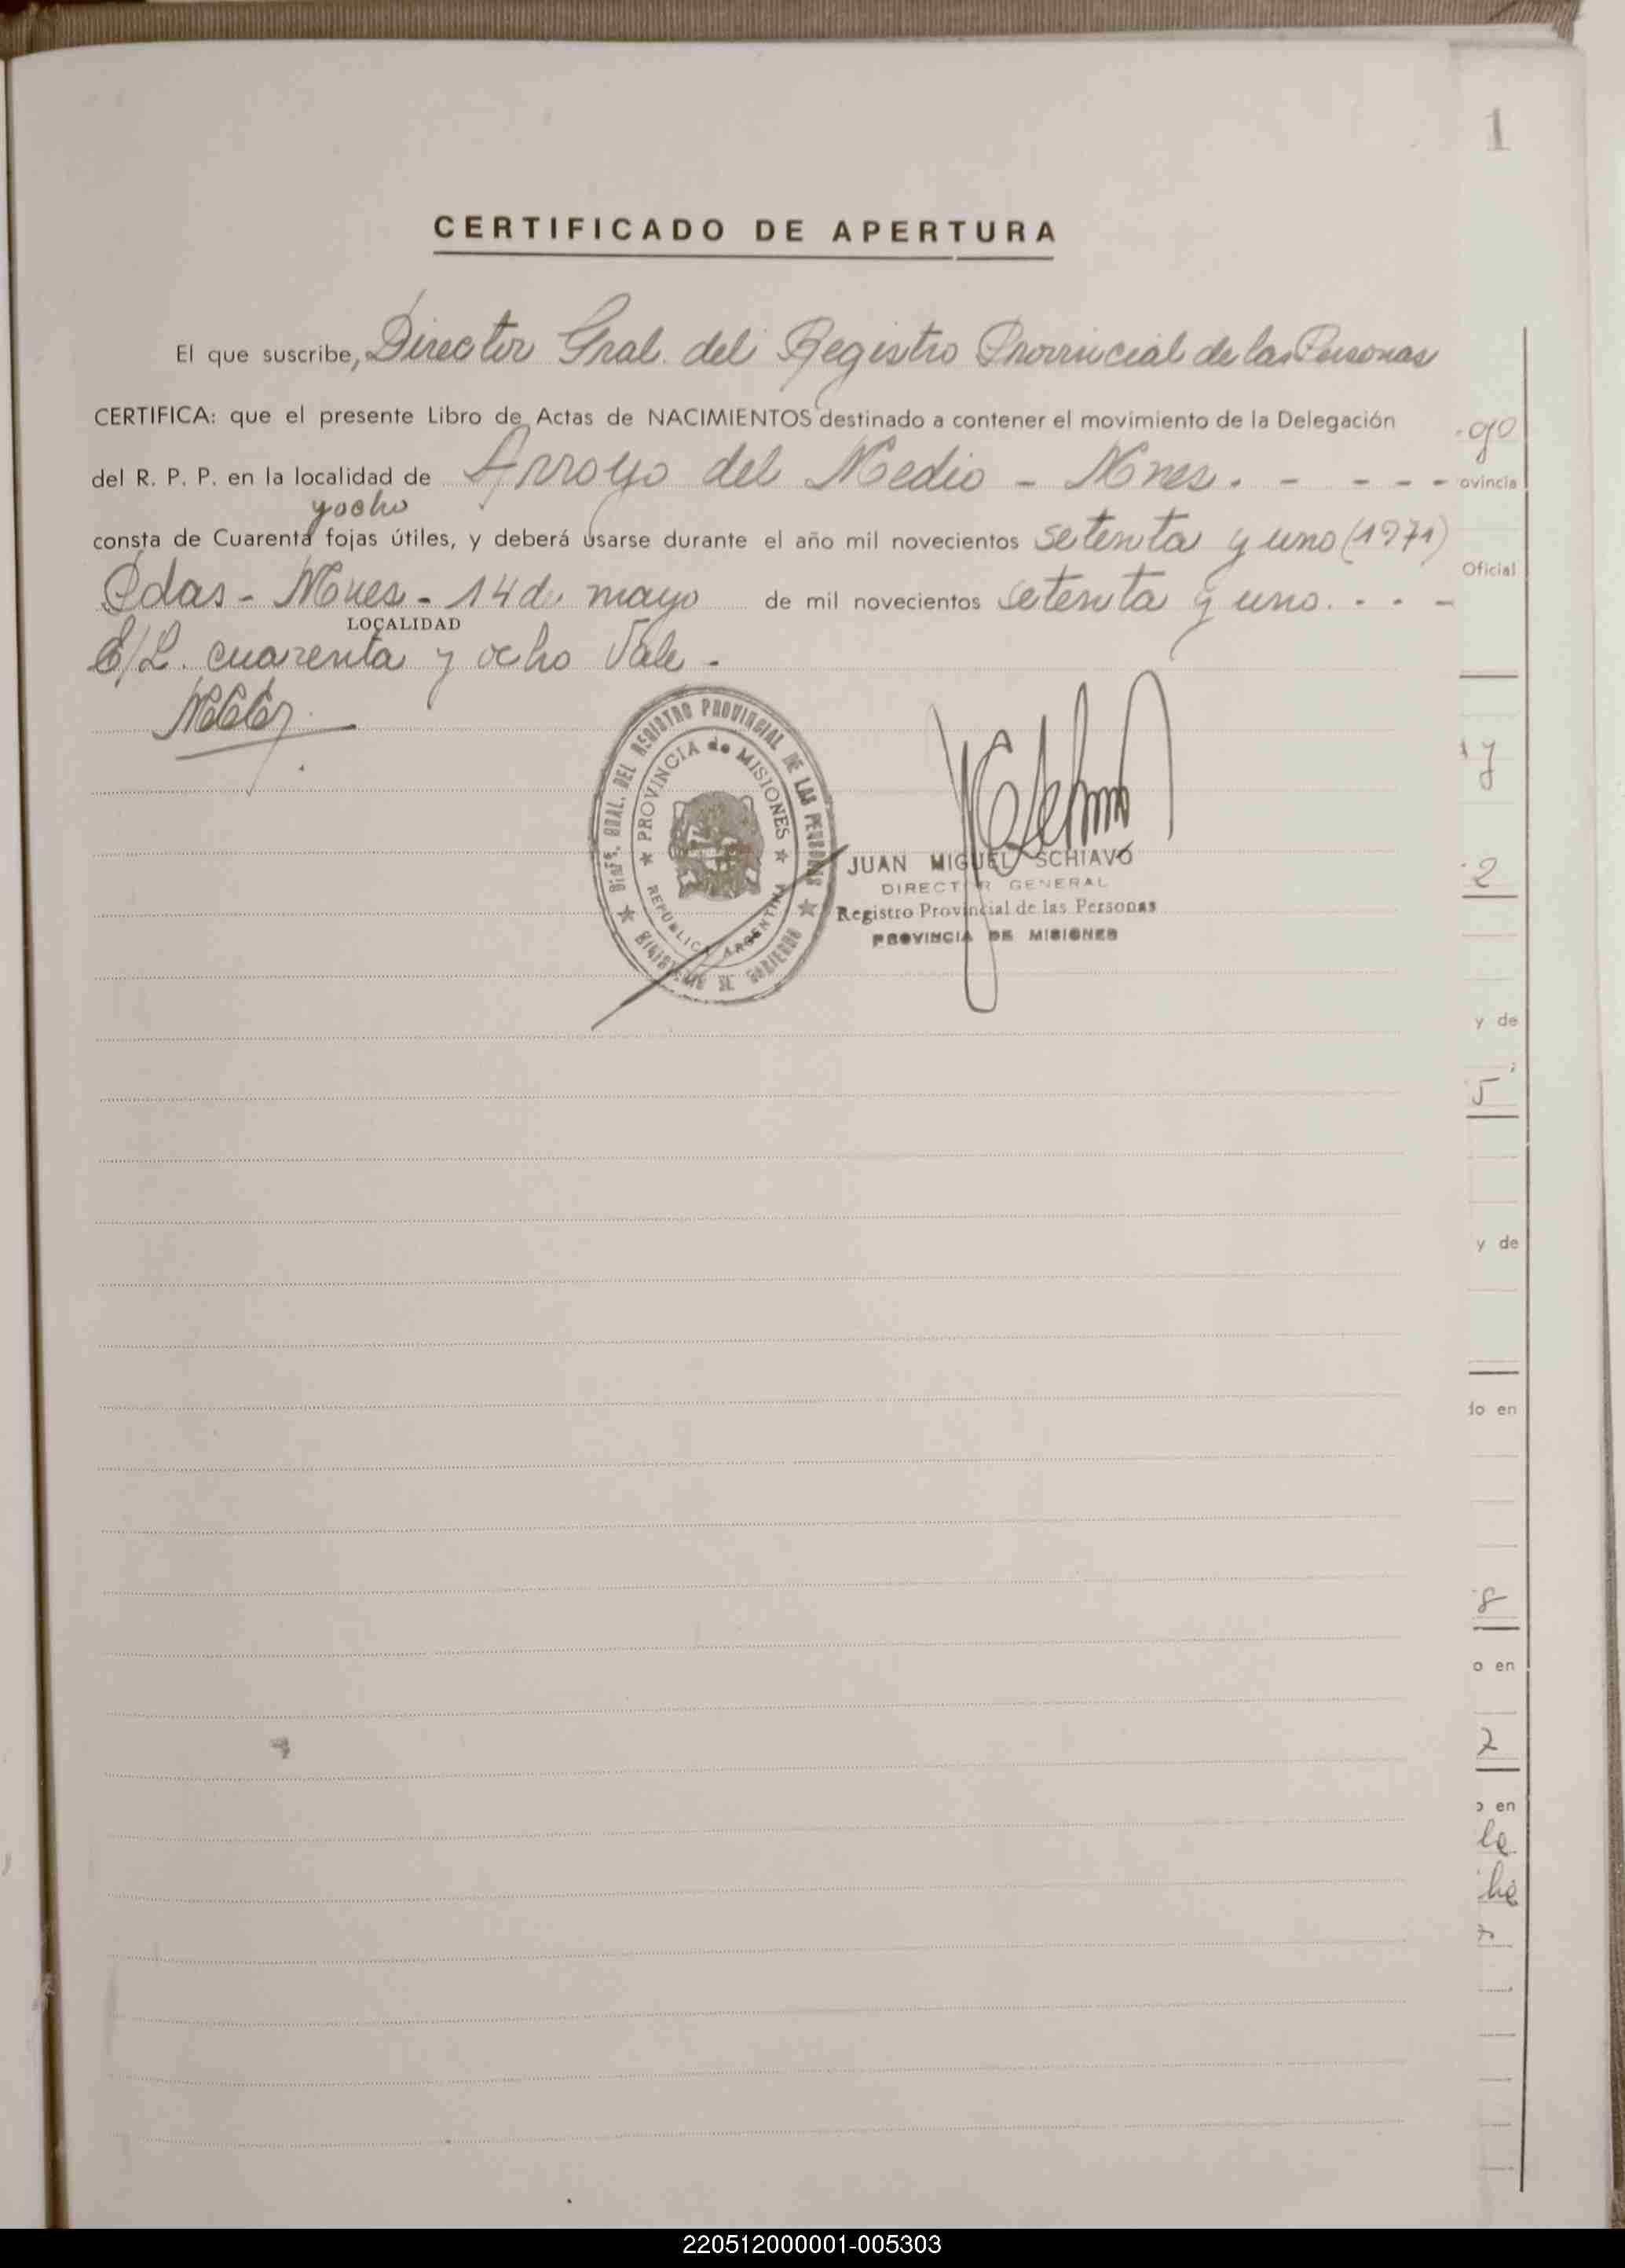 1
CERTIFICADO DE APERTURA
El que suscribe, Director Gral. del Registro Provincial de las Personas
CERTIFICA: que el presente Libro de Actas de NACIMIENTOS destinado a contener el movimiento de la Delegación
del R. P. P. en la localidad de Arroyo del Medio - Mnes. - - - -
y ocho
consta de Cuarenta fojas útiles, y deberá usarse durante el año mil novecientos setenta y uno (1971)
Pdas - Mnes - 14 de mayo de mil novecientos setenta y uno. - - -
LOCALIDAD
E/L. cuarenta y ocho Vale -
DIREC. GRAL. DEL REGISTRO PROVINCIAL DE LAS PERSONAS
PROVINCIA de MISIONES
REPUBLICA ARGENTINA
MINISTERIO DE GOBIERNO
JUAN MIGUEL SCHIAVO
DIRECTOR GENERAL
Registro Provincial de las Personas
PROVINCIA DE MISIONES
go
ovincia
Oficial
y
2
y de
5
y de
do en
8
o en
2
o en
le
he
220512000001-005303